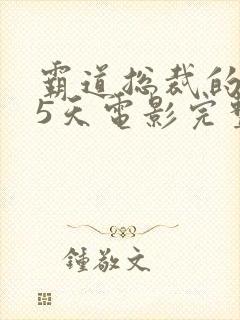 霸道总裁的
5天电影完整
鍾敬文